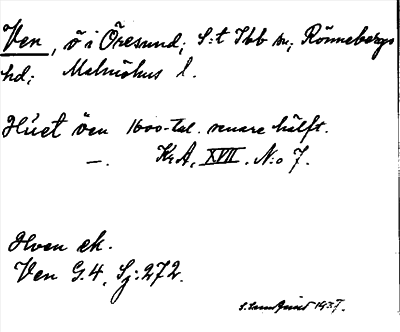 Ven, ö i Öresund; S:t Ibb sn; Rönnebergs
hd; Malmöhus l.
Huet öen 1600-tal. senare hälft.
—. KrA, XVII. N:o 7.
Hven ek.
Ven G.4, Sj:272.